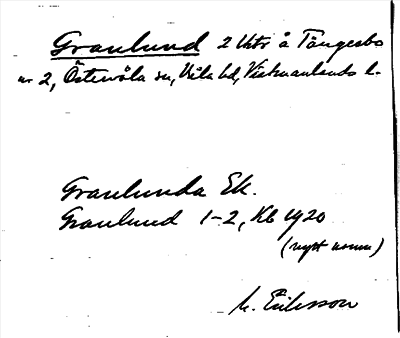 Granlund 2 lhtr å Tångesbo
nr 2, Östervåla sn, Våla hd, Västmanlands l.
Granlunda Ek.
Granlund 1-2, Kb 1920
(nytt namn)
M. Eriksson